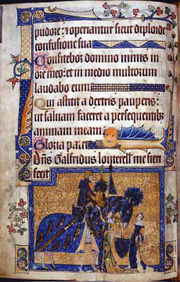 pudore: et operiantur sicut diploide
confusione sua
Confitebor domino nimis in
ore meo: et in medio multorum
laudabo eum
Qui astitit a dextris pauperis:
ut saluam faceret a persequentibus
animam meam
Gloria patri
Dñs Galfridus louterell me fieri
fecit